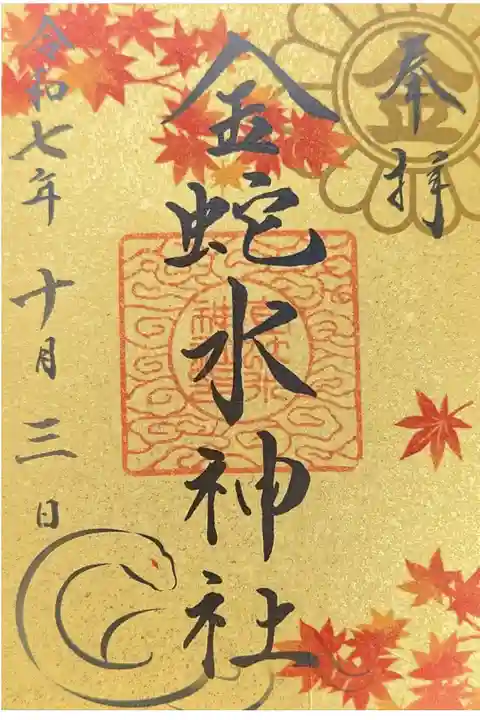 奉拝
金
金蛇水神社
令和七年 十月 三日